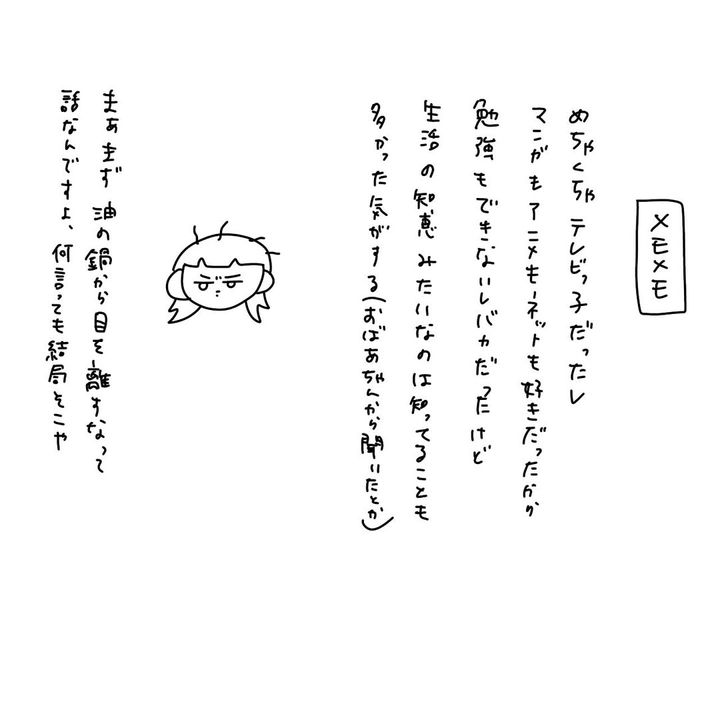 メモメモ
めちゃくちゃテレビっ子だったし
マンガもアニメもネットも好きだったから
勉強もできないしバカだったけど
生活の知恵みたいなのは知ってることも
多かった気がする(おばあちゃんから聞いたとか)
まあまず油の鍋から目を離すなって
話なんですよ、何言っても結局そこや